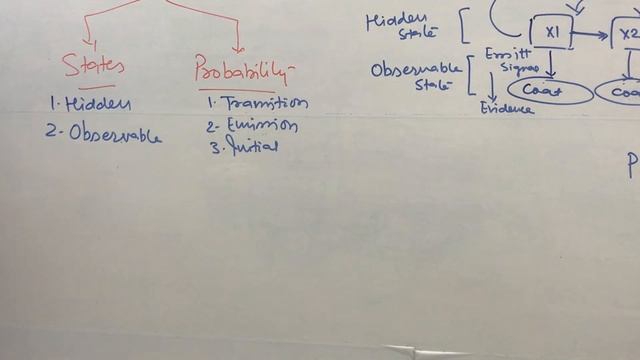 States
1. Hidden
2. Observable
Probability
1. Tramition
2. Emission
3. Initial
Hidden
State
Observable
State
Emitt
Signal
Evidence
X1
X2
Coat
Coa
P